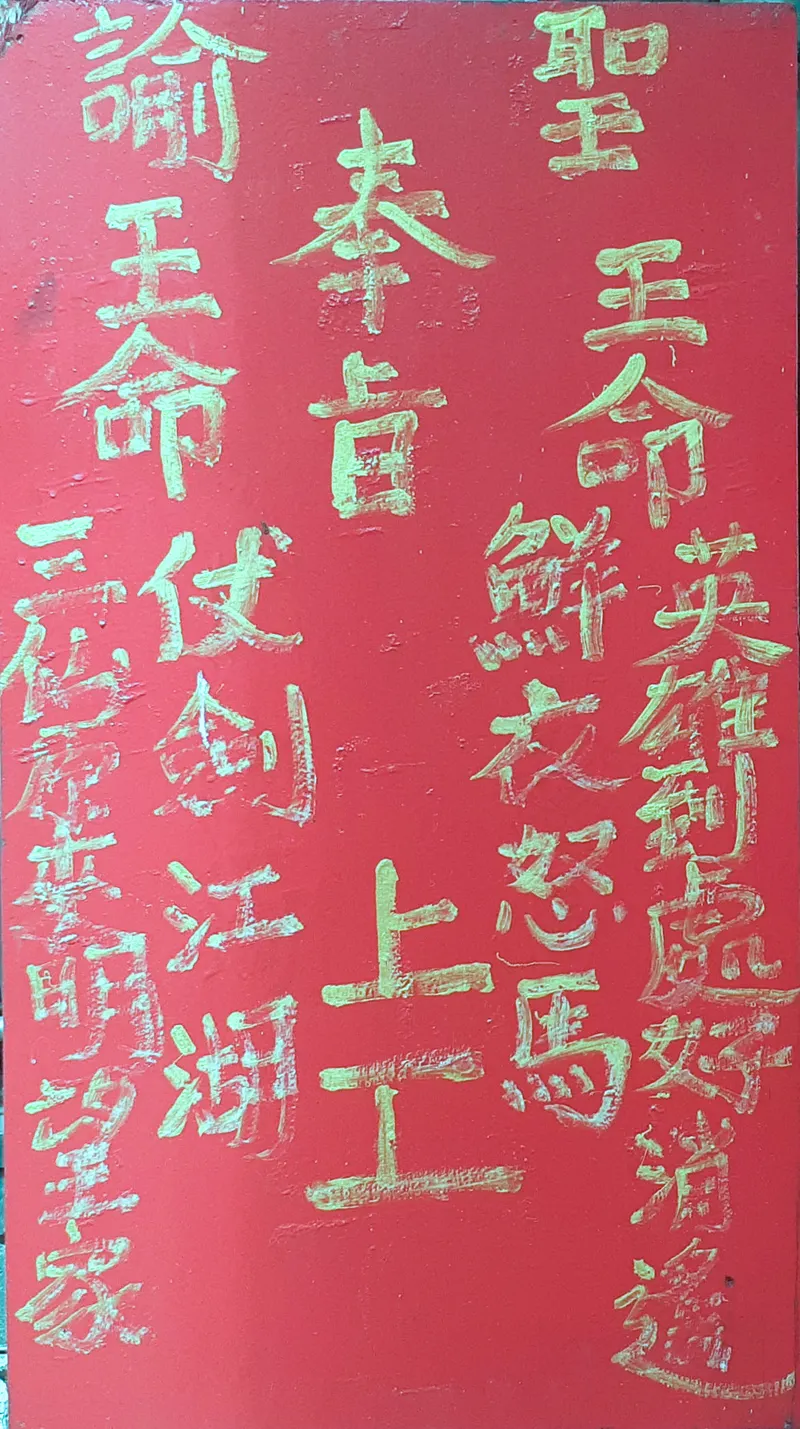 聖
王命
英雄到處好消遙
鮮衣怒馬
奉旨
上工
諭
王命
仗劍江湖
三仙原來明望家